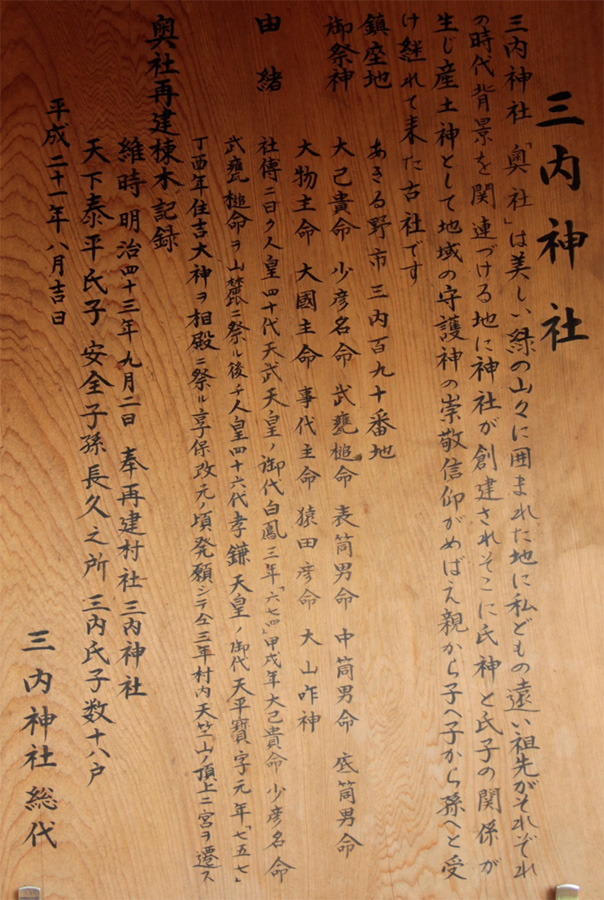 三内神社
三内神社「奥社」は美しい緑の山々に囲まれた地に私どもの遠い祖先がそれぞれ
の時代背景を関連づける地に神社が創建されそこに氏神と氏子の関係が
生じ産土神として地域の守護神の崇敬信仰がめばえ親から子へ子から孫へと受
け継れて来た古社です
鎮座地 あきる野市三内百九十番地
御祭神 大己貴命 少彦名命 武甕槌命 表筒男命 中筒男命 底筒男命
大物主命 大國主命 事代主命 猿田彦命 大山咋神
由緒 社傳ニ曰ク人皇四十代天武天皇ノ御代白鳳三年「六七四」甲戌年大己貴命 少彦名命
武甕槌命ヲ山麓ニ祭ル後チ人皇四十六代孝鎌天皇ノ御代天平寶字元年「七五七」
丁酉年住吉大神ヲ相殿ニ祭ル享保改元ノ頃発願シテ仝三年村内天竺山ノ頂上ニ宮ヲ遷ス
奥社再建棟木記録
維時明治四十三年九月二日 奉再建村社三内神社
天下泰平氏子安全子孫長久之所 三内氏子数十八戸
平成二十一年八月吉日
三内神社総代